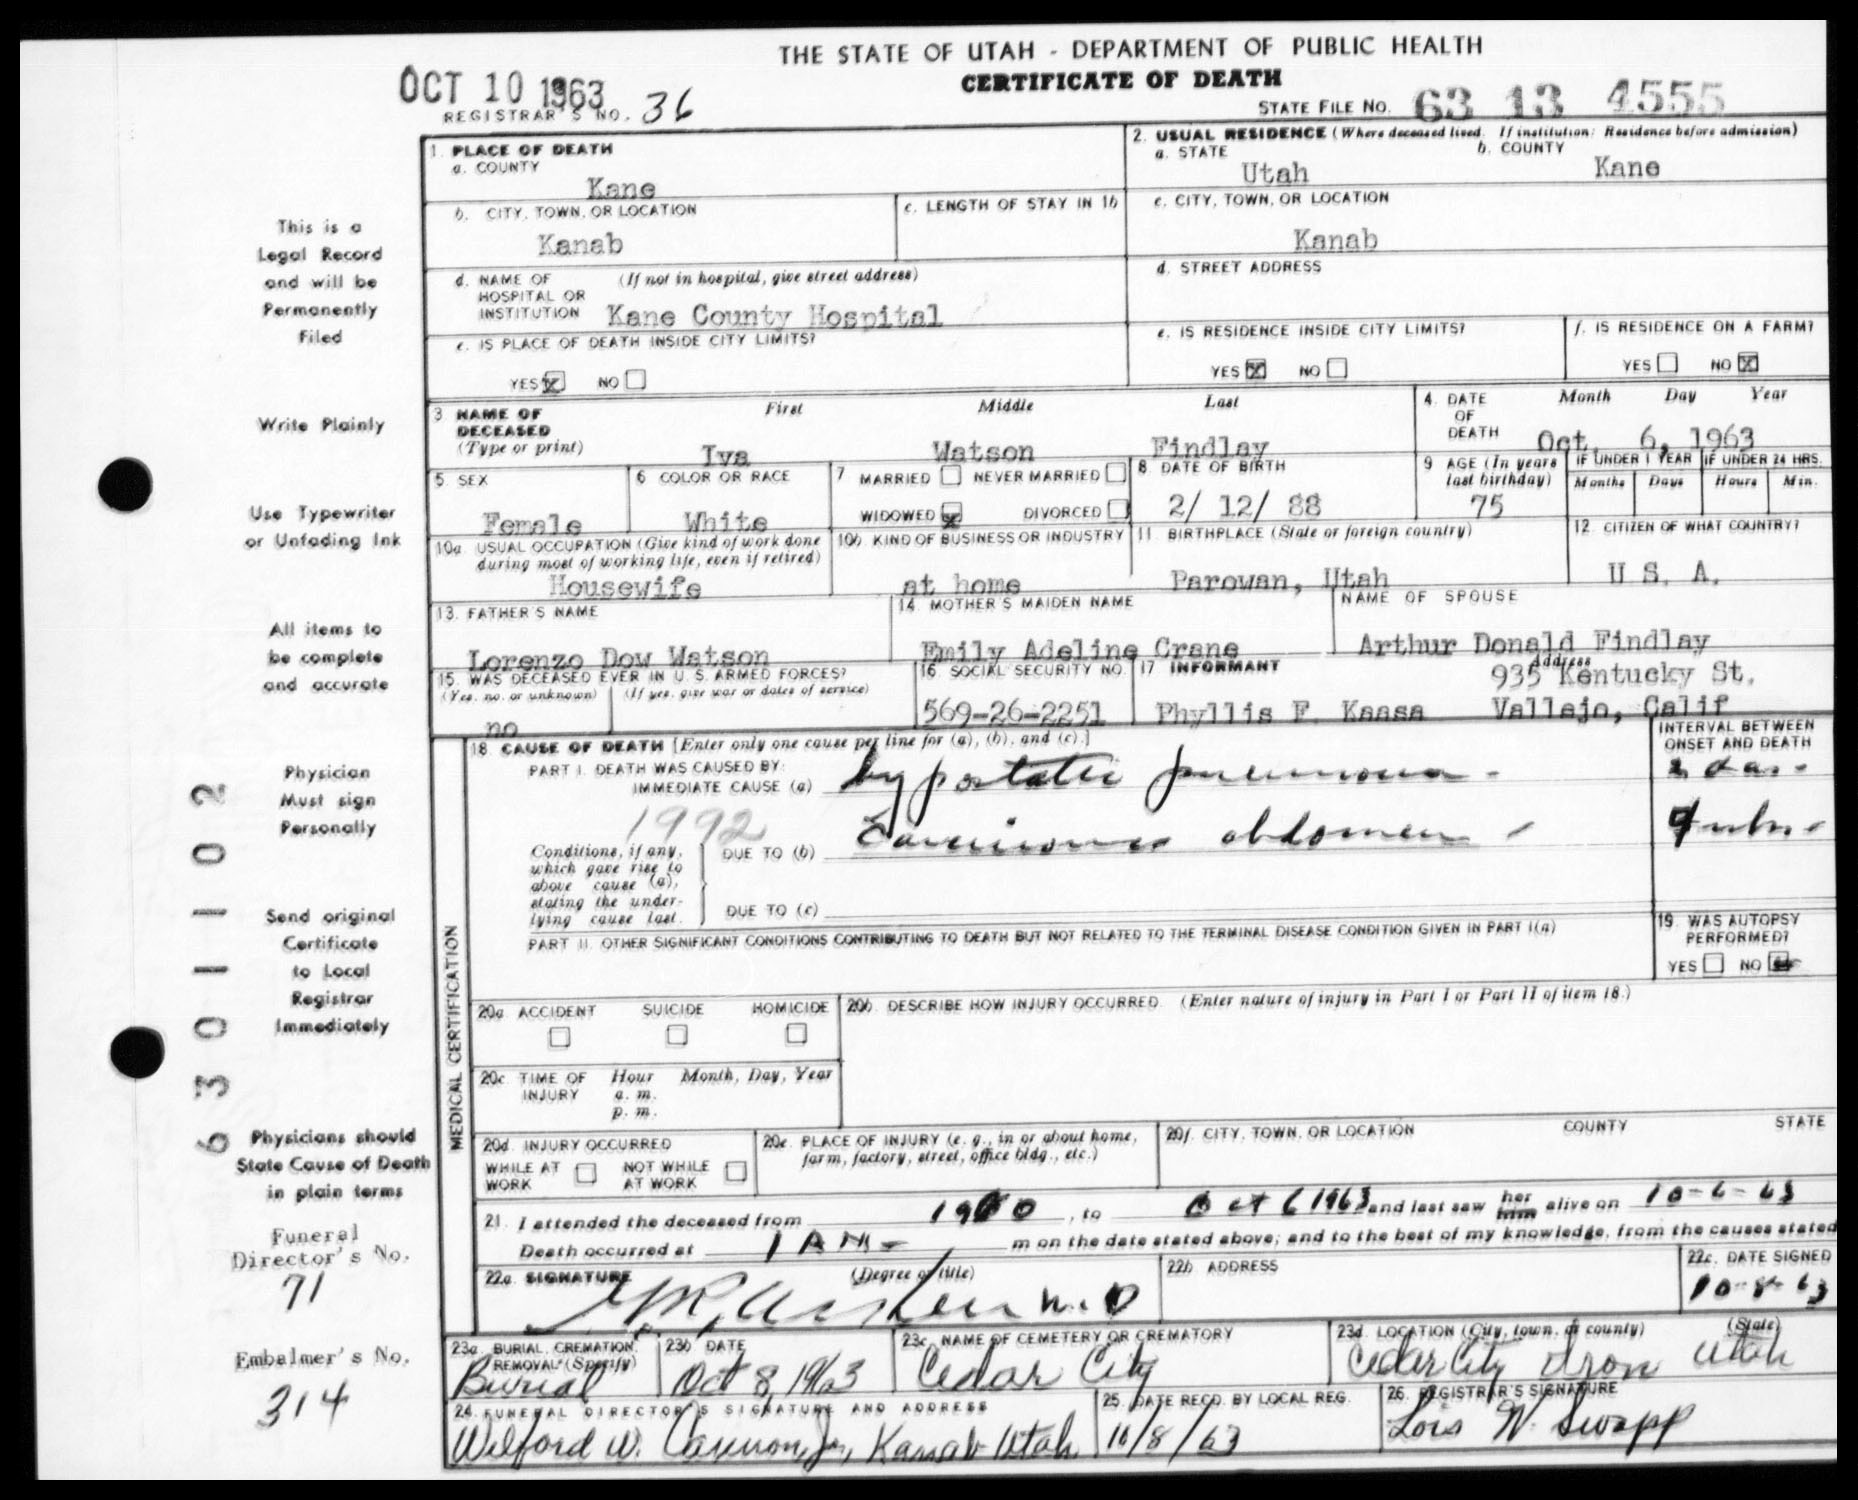 THE STATE OF UTAH - DEPARTMENT OF PUBLIC HEALTH
CERTIFICATE OF DEATH
OCT 10 1963
REGISTRAR'S NO. 36
STATE FILE NO. 63 13 4555
1. PLACE OF DEATH
a. COUNTY
Kane
2. USUAL RESIDENCE (Where deceased lived. If institution: Residence before admission)
a. STATE b. COUNTY
Utah Kane
b. CITY, TOWN, OR LOCATION
Kanab
c. LENGTH OF STAY IN 1b
c. CITY, TOWN, OR LOCATION
Kanab
d. NAME OF (If not in hospital, give street address)
HOSPITAL OR
INSTITUTION Kane County Hospital
d. STREET ADDRESS
e. IS PLACE OF DEATH INSIDE CITY LIMITS?
YES X NO
e. IS RESIDENCE INSIDE CITY LIMITS?
YES X NO
f. IS RESIDENCE ON A FARM?
YES NO X
3 NAME OF DECEASED
(Type or print)
First Middle Last
Iva Watson Findlay
4. DATE OF DEATH
Month Day Year
Oct. 6, 1963
5 SEX
Female
6 COLOR OR RACE
White
7 MARRIED NEVER MARRIED
WIDOWED X DIVORCED
8. DATE OF BIRTH
2/ 12/ 88
9 AGE (In years last birthday)
75
IF UNDER 1 YEAR IF UNDER 24 HRS.
Months Days Hours Min.
10a. USUAL OCCUPATION (Give kind of work done
during most of working life, even if retired)
Housewife
10b. KIND OF BUSINESS OR INDUSTRY
at home
11. BIRTHPLACE (State or foreign country)
Parowan, Utah
12. CITIZEN OF WHAT COUNTRY?
U S. A.
13. FATHER'S NAME
Lorenzo Dow Watson
14. MOTHER'S MAIDEN NAME
Emily Adeline Crane
NAME OF SPOUSE
Arthur Donald Findlay
15. WAS DECEASED EVER IN U. S. ARMED FORCES?
(Yes, no, or unknown) (If yes, give war or dates of service)
no
16. SOCIAL SECURITY NO.
569-26-2251
17 INFORMANT Address
935 Kentucky St.
Phyllis F. Kaasa Vallejo, Calif
18. CAUSE OF DEATH [Enter only one cause per line for (a), (b), and (c).]
INTERVAL BETWEEN
ONSET AND DEATH
PART I. DEATH WAS CAUSED BY:
IMMEDIATE CAUSE (a) hypostatic pneumonia -
1992
Conditions, if any,
which gave rise to
above cause (a),
stating the under-
lying cause last.
DUE TO (b) Carcinoma abdomen -
DUE TO (c)
PART II. OTHER SIGNIFICANT CONDITIONS CONTRIBUTING TO DEATH BUT NOT RELATED TO THE TERMINAL DISEASE CONDITION GIVEN IN PART I(a)
19. WAS AUTOPSY
PERFORMED?
YES NO
MEDICAL CERTIFICATION
20a. ACCIDENT SUICIDE HOMICIDE
20b. DESCRIBE HOW INJURY OCCURRED. (Enter nature of injury in Part I or Part II of item 18.)
20c. TIME OF Hour Month, Day, Year
INJURY a. m.
p. m.
20d. INJURY OCCURRED
WHILE AT WORK NOT WHILE AT WORK
20e. PLACE OF INJURY (e. g., in or about home,
farm, factory, street, office bldg., etc.)
20f. CITY, TOWN, OR LOCATION COUNTY STATE
21. I attended the deceased from , to Oct 6 1963 and last saw her him alive on 10-6-63
Death occurred at 1 AM - m on the date stated above; and to the best of my knowledge, from the causes stated
22a. SIGNATURE (Degree or title)
M.D
22b. ADDRESS
22c. DATE SIGNED
10-8-63
23a. BURIAL, CREMATION, REMOVAL (Specify)
Burial
23b. DATE
Oct 8, 1963
23c. NAME OF CEMETERY OR CREMATORY
Cedar City
23d. LOCATION (City, town, or county) (State)
Cedar City Iron Utah
24. FUNERAL DIRECTOR'S SIGNATURE AND ADDRESS
Wilford W. Cannon, Jr, Kanab Utah
25. DATE RECD. BY LOCAL REG.
10/8/63
26. REGISTRAR'S SIGNATURE
Lois W. Swapp
This is a
Legal Record
and will be
Permanently
Filed
Write Plainly
Use Typewriter
or Unfading Ink
All items to
be complete
and accurate
Physician
Must sign
Personally
Send original
Certificate
to Local
Registrar
Immediately
Physicians should
State Cause of Death
in plain terms
Funeral
Director's No.
71
Embalmer's No.
314
6301102